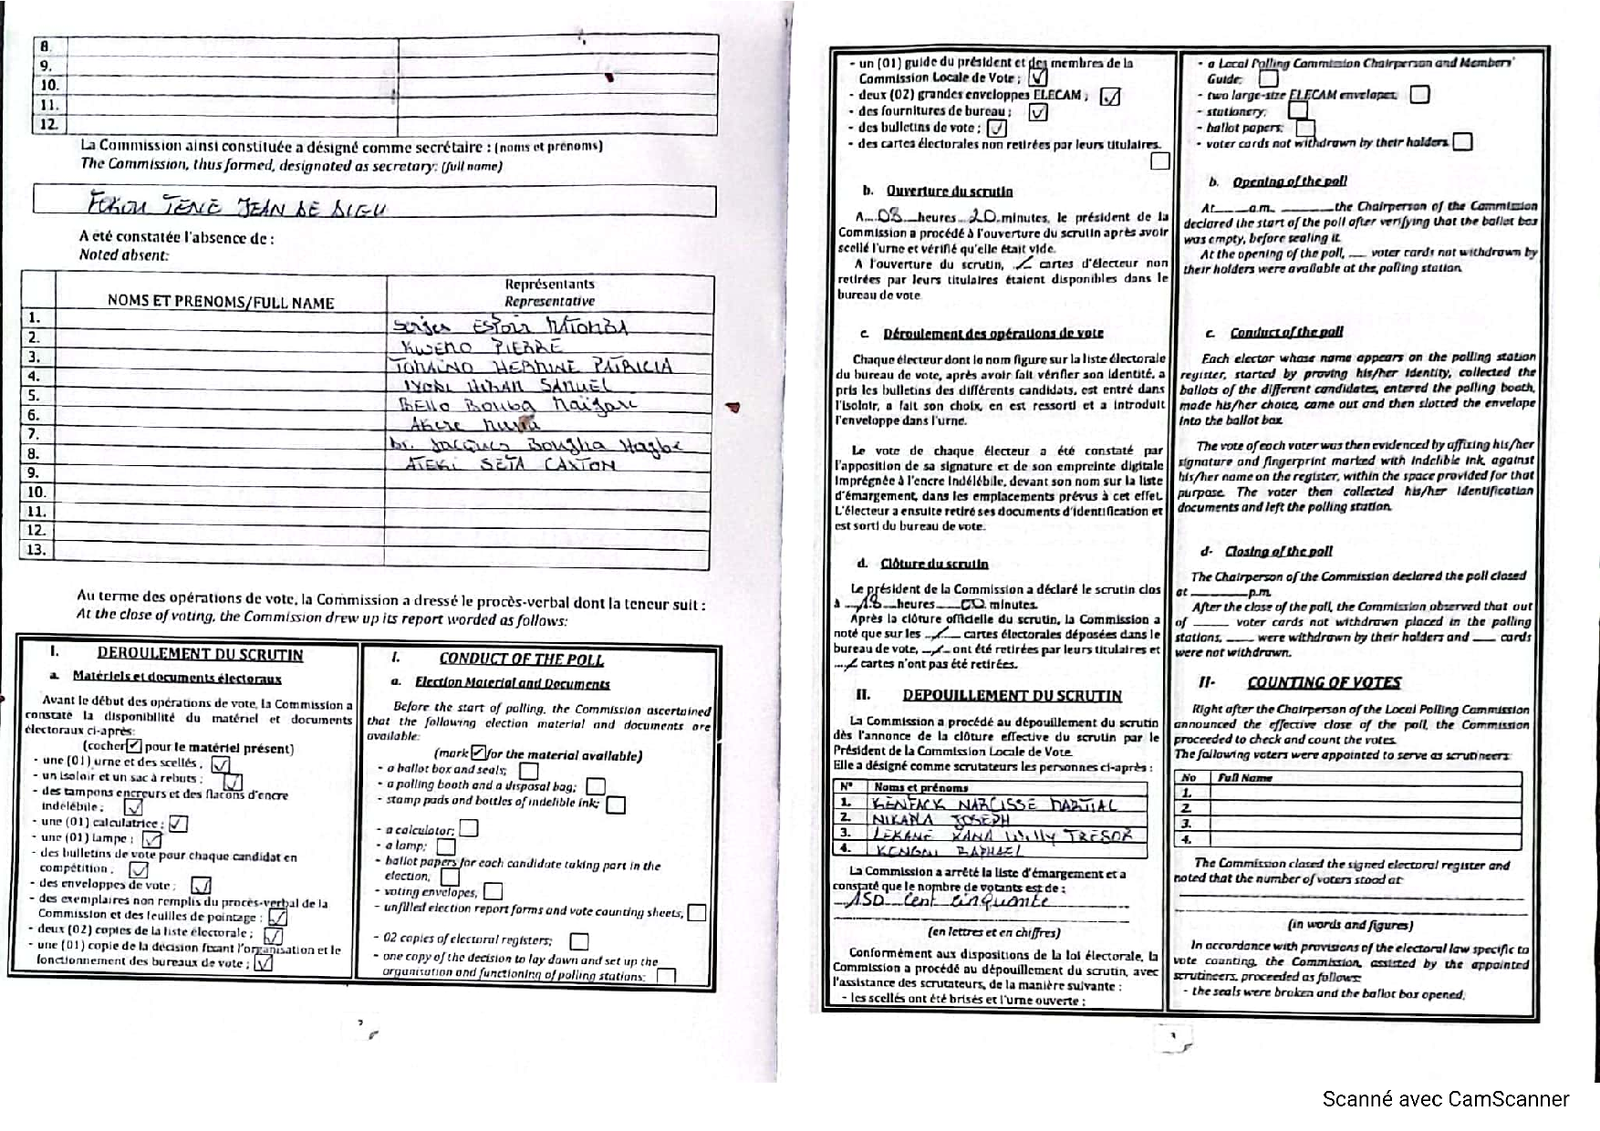 8.
9.
10.
11.
12.
La Commission ainsi constituée a désigné comme secrétaire : (noms et prénoms)
The Commission, thus formed, designated as secretary: (full name)
TENE JEAN DE DIEU
A été constatée l'absence de :
Noted absent:
NOMS ET PRENOMS/FULL NAME
Représentants
Representative
1. Serges ESPOIR MATOMBA
2. KWEMO PIERRE
3. TOMAINO HERMINE PATRICIA
4. IYODI HIRAM SAMUEL
5. BELLO BOUBA Maïgari
6. AKERE MUNA
7. Dr. Jacques Bougha Hagbe
8. ATEKI SETA CAXTON
9.
10.
11.
12.
13.
Au terme des opérations de vote, la Commission a dressé le procès-verbal dont la teneur suit :
At the close of voting, the Commission drew up its report worded as follows:
I. DEROULEMENT DU SCRUTIN
a. Matériels et documents électoraux
Avant le début des opérations de vote, la Commission a
constaté la disponibilité du matériel et documents
électoraux ci-après:
(cocher ✓ pour le matériel présent)
- une (01) urne et des scellés , ✓
- un isoloir et un sac à rebuts ; ✓
- des tampons encreurs et des flacons d'encre
indélébile ; ✓
- une (01) calculatrice ; ✓
- une (01) lampe ; ✓
- des bulletins de vote pour chaque candidat en
compétition ; ✓
- des enveloppes de vote ; ✓
- des exemplaires non remplis du procès-verbal de la
Commission et des feuilles de pointage ; ✓
- deux (02) copies de la liste électorale ; ✓
- une (01) copie de la décision fixant l'organisation et le
fonctionnement des bureaux de vote ; ✓
I. CONDUCT OF THE POLL
a. Election Material and Documents
Before the start of polling, the Commission ascertained
that the following election material and documents are
available:
(mark ✓ for the material available)
- a ballot box and seals;
- a polling booth and a disposal bag;
- stamp pads and bottles of indelible ink;
- a calculator;
- a lamp;
- ballot papers for each candidate taking part in the
election,
- voting envelopes,
- unfilled election report forms and vote counting sheets,
- 02 copies of electoral registers;
- one copy of the decision to lay down and set up the
organisation and functioning of polling stations;
- un (01) guide du président et des membres de la
Commission Locale de Vote ; ✓
- deux (02) grandes enveloppes ELECAM ; ✓
- des fournitures de bureau ; ✓
- des bulletins de vote ; ✓
- des cartes électorales non retirées par leurs titulaires.
b. Ouverture du scrutin
A 08 heures 20 minutes, le président de la
Commission a procédé à l'ouverture du scrutin après avoir
scellé l'urne et vérifié qu'elle était vide.
A l'ouverture du scrutin, / cartes d'électeur non
retirées par leurs titulaires étaient disponibles dans le
bureau de vote
c. Déroulement des opérations de vote
Chaque électeur dont le nom figure sur la liste électorale
du bureau de vote, après avoir fait vérifier son identité, a
pris les bulletins des différents candidats, est entré dans
l'isoloir, a fait son choix, en est ressorti et a introduit
l'enveloppe dans l'urne.
Le vote de chaque électeur a été constaté par
l'apposition de sa signature et de son empreinte digitale
imprégnée à l'encre indélébile, devant son nom sur la liste
d'émargement, dans les emplacements prévus à cet effet.
L'électeur a ensuite retiré ses documents d'identification et
est sorti du bureau de vote.
d. Clôture du scrutin
Le président de la Commission a déclaré le scrutin clos
à 18 heures 00 minutes.
Après la clôture officielle du scrutin, la Commission a
noté que sur les / cartes électorales déposées dans le
bureau de vote, / ont été retirées par leurs titulaires et
/ cartes n'ont pas été retirées.
II. DEPOUILLEMENT DU SCRUTIN
La Commission a procédé au dépouillement du scrutin
dès l'annonce de la clôture effective du scrutin par le
Président de la Commission Locale de Vote.
Elle a désigné comme scrutateurs les personnes ci-après :
N° Noms et prénoms
1. KENFACK NARCISSE MARTIAL
2. NIKAMA JOSEPH
3. LEKANE XANA Willy TRESOR
4. KENGNI RAPHAEL
La Commission a arrêté la liste d'émargement et a
constaté que le nombre de votants est de :
150 cent cinquante
(en lettres et en chiffres)
Conformément aux dispositions de la loi électorale, la
Commission a procédé au dépouillement du scrutin, avec
l'assistance des scrutateurs, de la manière suivante :
- les scellés ont été brisés et l'urne ouverte ;
- a Local Polling Commission Chairperson and Members'
Guide;
- two large-size ELECAM envelopes,
- stationery;
- ballot papers;
- voter cards not withdrawn by their holders
b. Opening of the poll
At ____ a.m. ____ the Chairperson of the Commission
declared the start of the poll after verifying that the ballot box
was empty, before sealing it.
At the opening of the poll, ___ voter cards not withdrawn by
their holders were available at the polling station.
c. Conduct of the poll
Each elector whose name appears on the polling station
register, started by proving his/her identity, collected the
ballots of the different candidates, entered the polling booth,
made his/her choice, came out and then slotted the envelope
into the ballot box.
The vote of each voter was then evidenced by affixing his/her
signature and fingerprint marked with indelible ink, against
his/her name on the register, within the space provided for that
purpose. The voter then collected his/her identification
documents and left the polling station.
d- Closing of the poll
The Chairperson of the Commission declared the poll closed
at ____ p.m.
After the close of the poll, the Commission observed that out
of ____ voter cards not withdrawn placed in the polling
stations, ____ were withdrawn by their holders and ____ cards
were not withdrawn.
II- COUNTING OF VOTES
Right after the Chairperson of the Local Polling Commission
announced the effective close of the poll, the Commission
proceeded to check and count the votes.
The following voters were appointed to serve as scrutineers:
No Full Name
1.
2.
3.
4.
The Commission closed the signed electoral register and
noted that the number of voters stood at:
(in words and figures)
In accordance with provisions of the electoral law specific to
vote counting, the Commission, assisted by the appointed
scrutineers, proceeded as follows:
- the seals were broken and the ballot box opened;
Scanné avec CamScanner